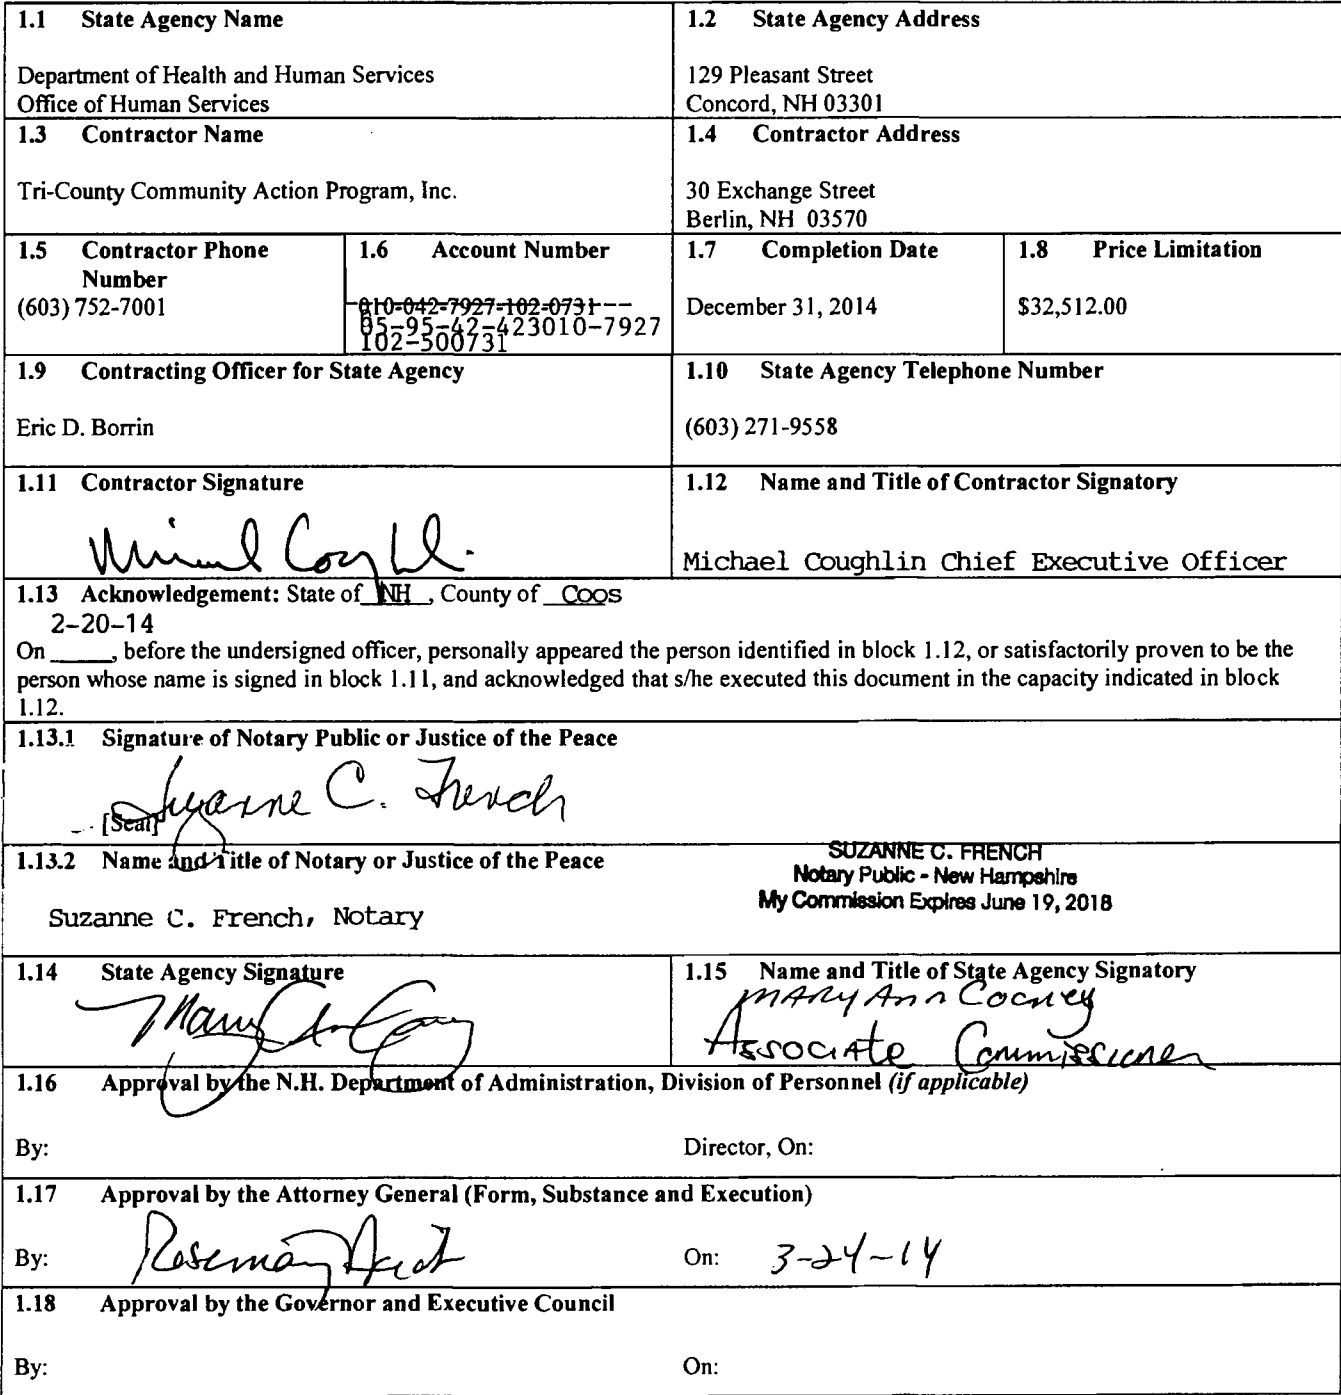 1.1 State Agency Name
Department of Health and Human Services
Office of Human Services
1.2 State Agency Address
129 Pleasant Street
Concord, NH 03301
1.3 Contractor Name
Tri-County Community Action Program, Inc.
1.4 Contractor Address
30 Exchange Street
Berlin, NH 03570
1.5 Contractor Phone
Number
(603) 752-7001
1.6 Account Number
010-042-7927-102-0731
05-95-42-423010-7927
102-500731
1.7 Completion Date
December 31, 2014
1.8 Price Limitation
$32,512.00
1.9 Contracting Officer for State Agency
Eric D. Borrin
1.10 State Agency Telephone Number
(603) 271-9558
1.11 Contractor Signature
1.12 Name and Title of Contractor Signatory
Michael Coughlin Chief Executive Officer
1.13 Acknowledgement: State of NH, County of Coos
2-20-14
On _____, before the undersigned officer, personally appeared the person identified in block 1.12, or satisfactorily proven to be the
person whose name is signed in block 1.11, and acknowledged that s/he executed this document in the capacity indicated in block
1.12.
1.13.1 Signature of Notary Public or Justice of the Peace
Suzanne C. French
[Seal]
1.13.2 Name and Title of Notary or Justice of the Peace
Suzanne C. French, Notary
SUZANNE C. FRENCH
Notary Public - New Hampshire
My Commission Expires June 19, 2018
1.14 State Agency Signature
1.15 Name and Title of State Agency Signatory
MARY Ann Cooney
Associate Commissioner
1.16 Approval by the N.H. Department of Administration, Division of Personnel (if applicable)
By:
Director, On:
1.17 Approval by the Attorney General (Form, Substance and Execution)
By: Rosemary
On: 3-24-14
1.18 Approval by the Governor and Executive Council
By:
On: